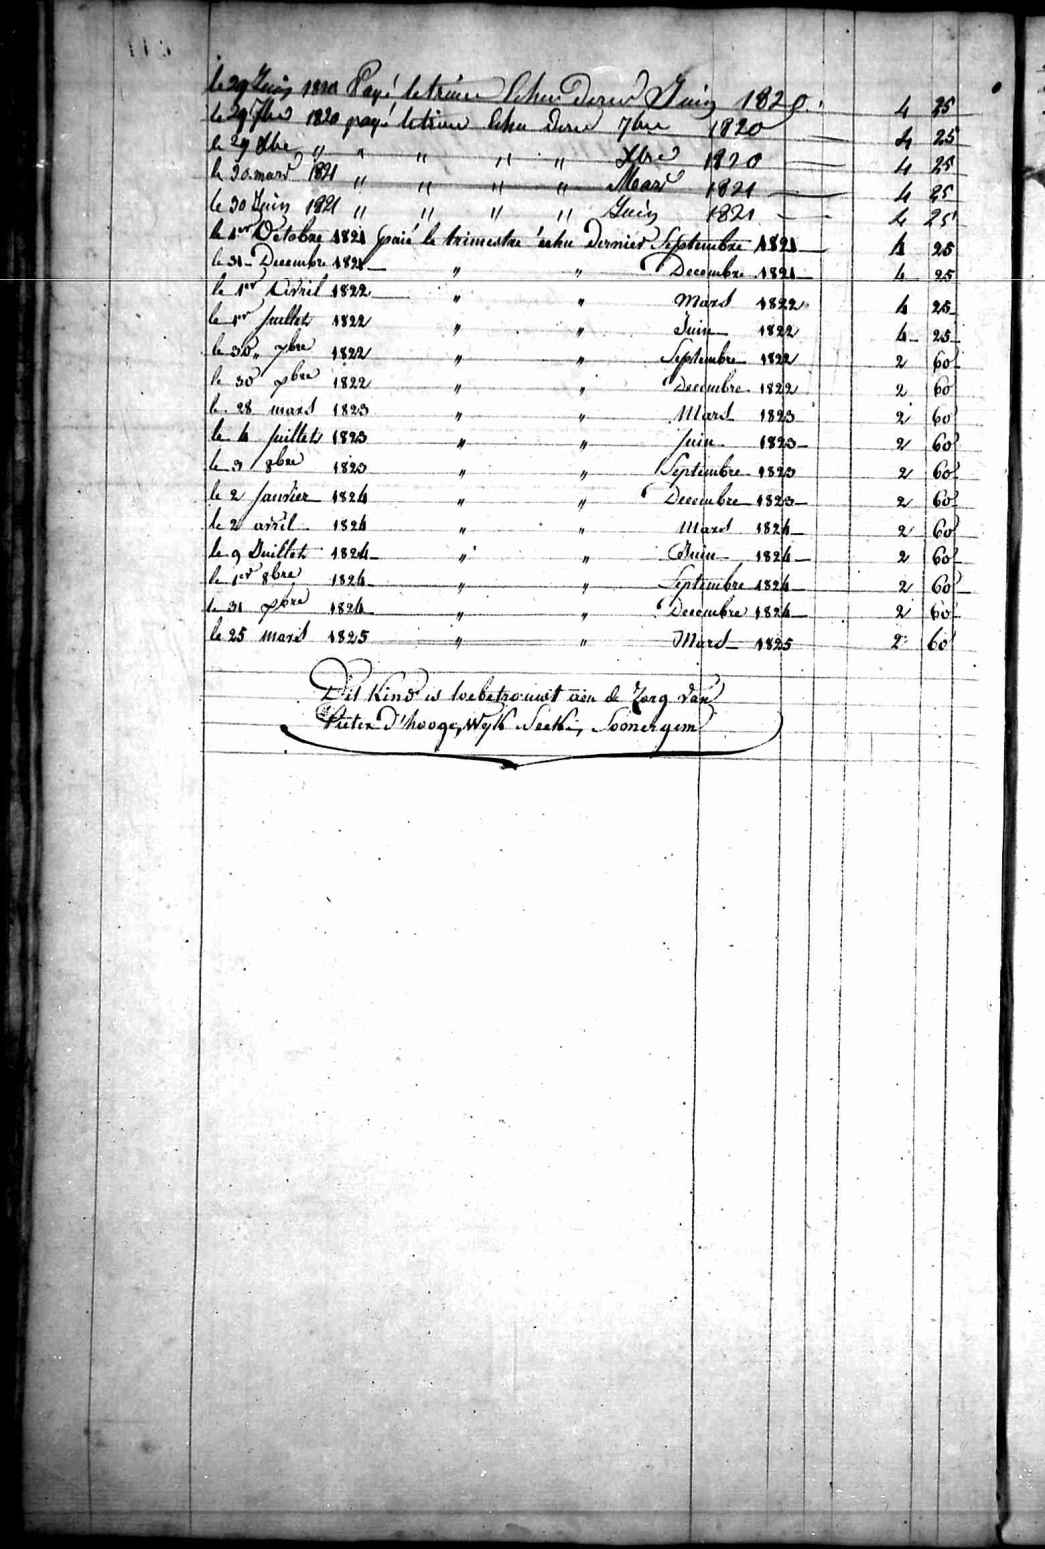 le 29 Juin 1820 Payé le trime Echu dernr Juin 1820. 4 25
le 29 7bre 1820 payé le trime Echu dernr 7bre 1820 4 25
le 29 Xbre " " " " " Xbre 1820 4 25
le 30 mars 1821 " " " " Mars 1821 4 25
le 30 Juin 1821 " " " " Juin 1821 4 25
le 1er Octobre 1821 paié le trimestre echu dernier Septembre 1821 4 25
le 31 Decembre 1821 " " Decembre 1821 4 25
le 1er Avril 1822 " " Mars 1822 4 25
le 1er Juillet 1822 " " Juin 1822 4 25
le 30 7bre 1822 " " Septembre 1822 2 60
le 30 bre 1822 " " Decembre 1822 2 60
le 28 mars 1823 " " Mars 1823 2 60
le 4 Juillet 1823 " " Juin 1823 2 60
le 3 8bre 1823 " " Septembre 1823 2 60
le 2 Janvier 1824 " " Decembre 1823 2 60
le 2 avril 1824 " " Mars 1824 2 60
le 9 Juillet 1824 " " Juin 1824 2 60
le 1er 8bre 1824 " " Septembre 1824 2 60
le 31 bre 1824 " " Decembre 1824 2 60
le 25 mars 1825 " " Mars 1825 2 60
Dit Kind is toebetrouwt aen de Zorg van
Pieter D'hooge, Wyk Somergem